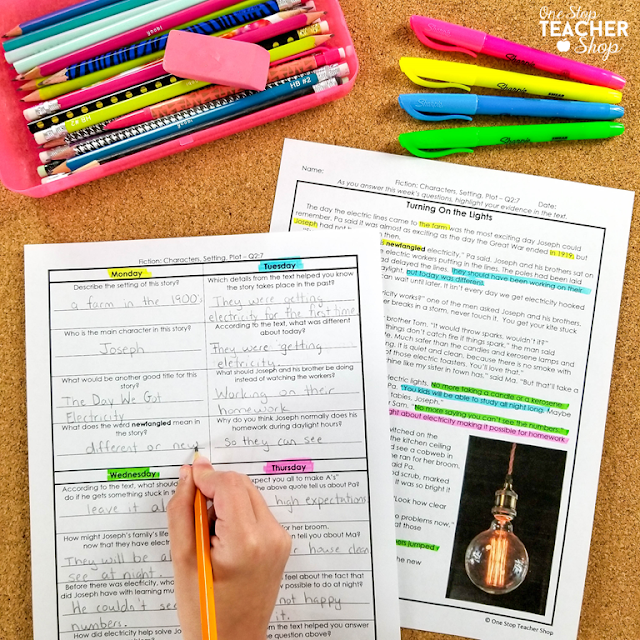 One Stop
TEACHER
Shop
goki
HB #2
Sharpie
Name:
Fiction: Characters, Setting, Plot – Q2:7
Date:
As you answer this week's questions, highlight your evidence in the text.
Turning On the Lights
The day the electric lines came to the farm was the most exciting day Joseph could
remember. Pa said it was almost as exciting as the day the Great War ended in 1919, but
Joseph
then.
newfangled electricity," Pa said. Joseph and his brothers sat on
electric workers putting in the lines. The poles had been laid
had delayed the lines. They should have been working on their
daylight, but today was different.
can wait until later. It isn't every day we get electricity hooked
works?" one of the men asked Joseph and his brothers.
breaks in a storm, never touch it. You get your kite stuck
brother Tom. "It would throw sparks, wouldn't it?"
things don't catch fire it springs park," the man said
Much safer than the candles and kerosene lamps and
It is quiet and clean, because there is no smoke with
of those electric toasters. You'll love that."
like my sister in town has," said Ma. "But that'll take a
electric lights. No more taking a candle or a kerosene
Pa. "You kids will be able to study all night long. Maybe
tables, Joseph."
Sam. "No more saying you can't see the numbers."
right about electricity making it possible for homework
switched on the
the kitchen ceiling
see a cobweb in
she ran for her broom,
and scrub, marked
It was so bright it
"Look how clear
problems now,"
at those
jumped
the new
© One Stop Teacher Shop
Fiction: Characters, Setting, Plot – Q2:7
Monday
Tuesday
Describe the setting of this story?
a farm in the 1900's
Which details from the text helped you know
the story takes place in the past?
They were getting
electricity for the first time.
Who is the main character in this story?
Joseph
According to the text, what was different
about today?
They were getting
eletricity.
What would be another good title for this
story?
The Day We Got
Electricity
What should Joseph and his brother be doing
instead of watching the workers?
Working on their
homework
What does the word newfangled mean in
the story?
different or new
Why do you think Joseph normally does his
homework during daylight hours?
So they can see
Wednesday
Thursday
According to the text, what should
do if he gets something stuck in
leave it al
expect you all to make A's"
the above quote tell us about Pa?
high expectations
How might Joseph's family's life
now that they have elect
They will be a
see at night.
for her broom,
tell you about Ma?
her house clean
Before there was electricity, who
did Joseph have with learning mu
He couldn't see
numbers.
feel about the fact that
possible to do at night?
not happy
it.
How did electricity help solve Jos
from the text helped you answer
the question above?